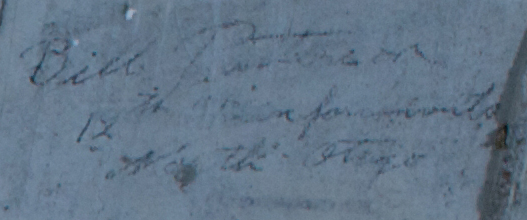 Bill Paterson
12th Reinforcements
North Otago